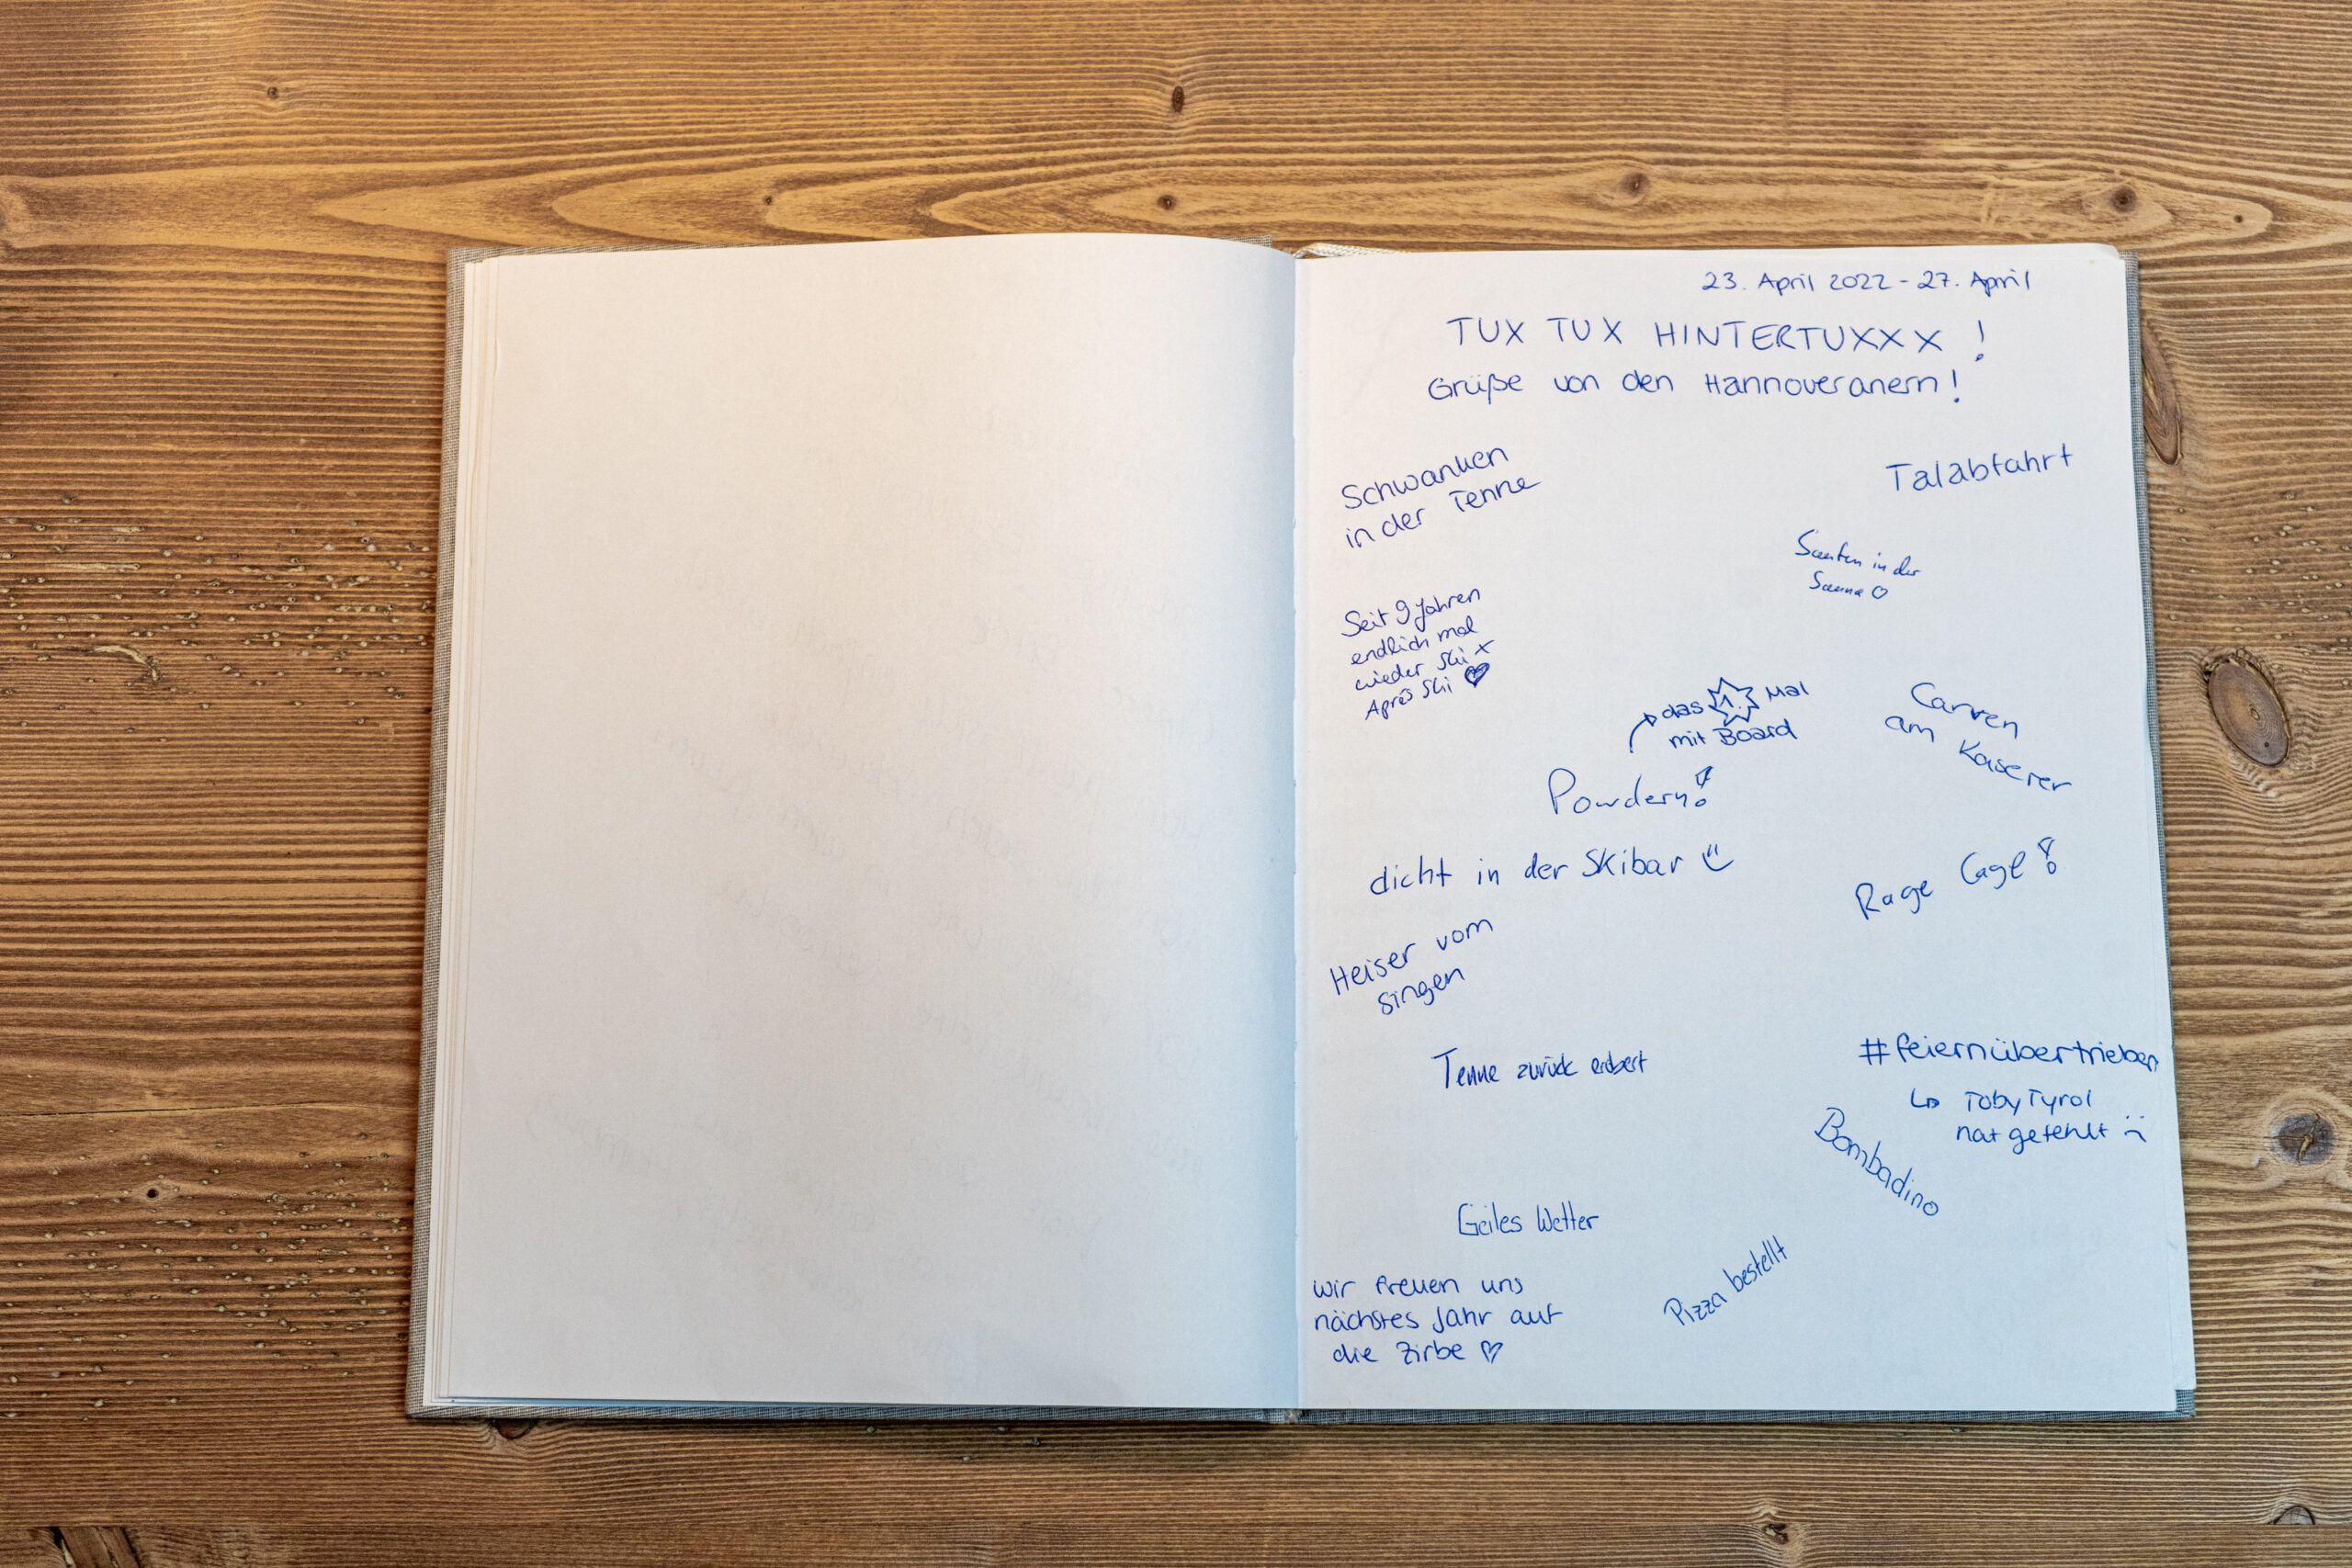 23. April 2022 - 27. April
TUX TUX HINTERTUXXX !
Grüße von den Hannoveranern!
Schwanken
in der Tenne
Talabfahrt
in der
Sauna ♡
Seit 9 Jahren
endlich mal
wieder Ski +
Aprés Ski ♥
das 1. Mal
mit Board
Powdern!
Carven
am Kaserer
dicht in der Skibar
Rage Cage!
Heiser vom
singen
Tenne zurück erobert
#feiernübertrieben
↳ TobyTyrol
hat gefehlt :(
Bombadino
Geiles Wetter
Pizza bestellt
wir freuen uns
nächstes Jahr auf
die Zirbe ♡